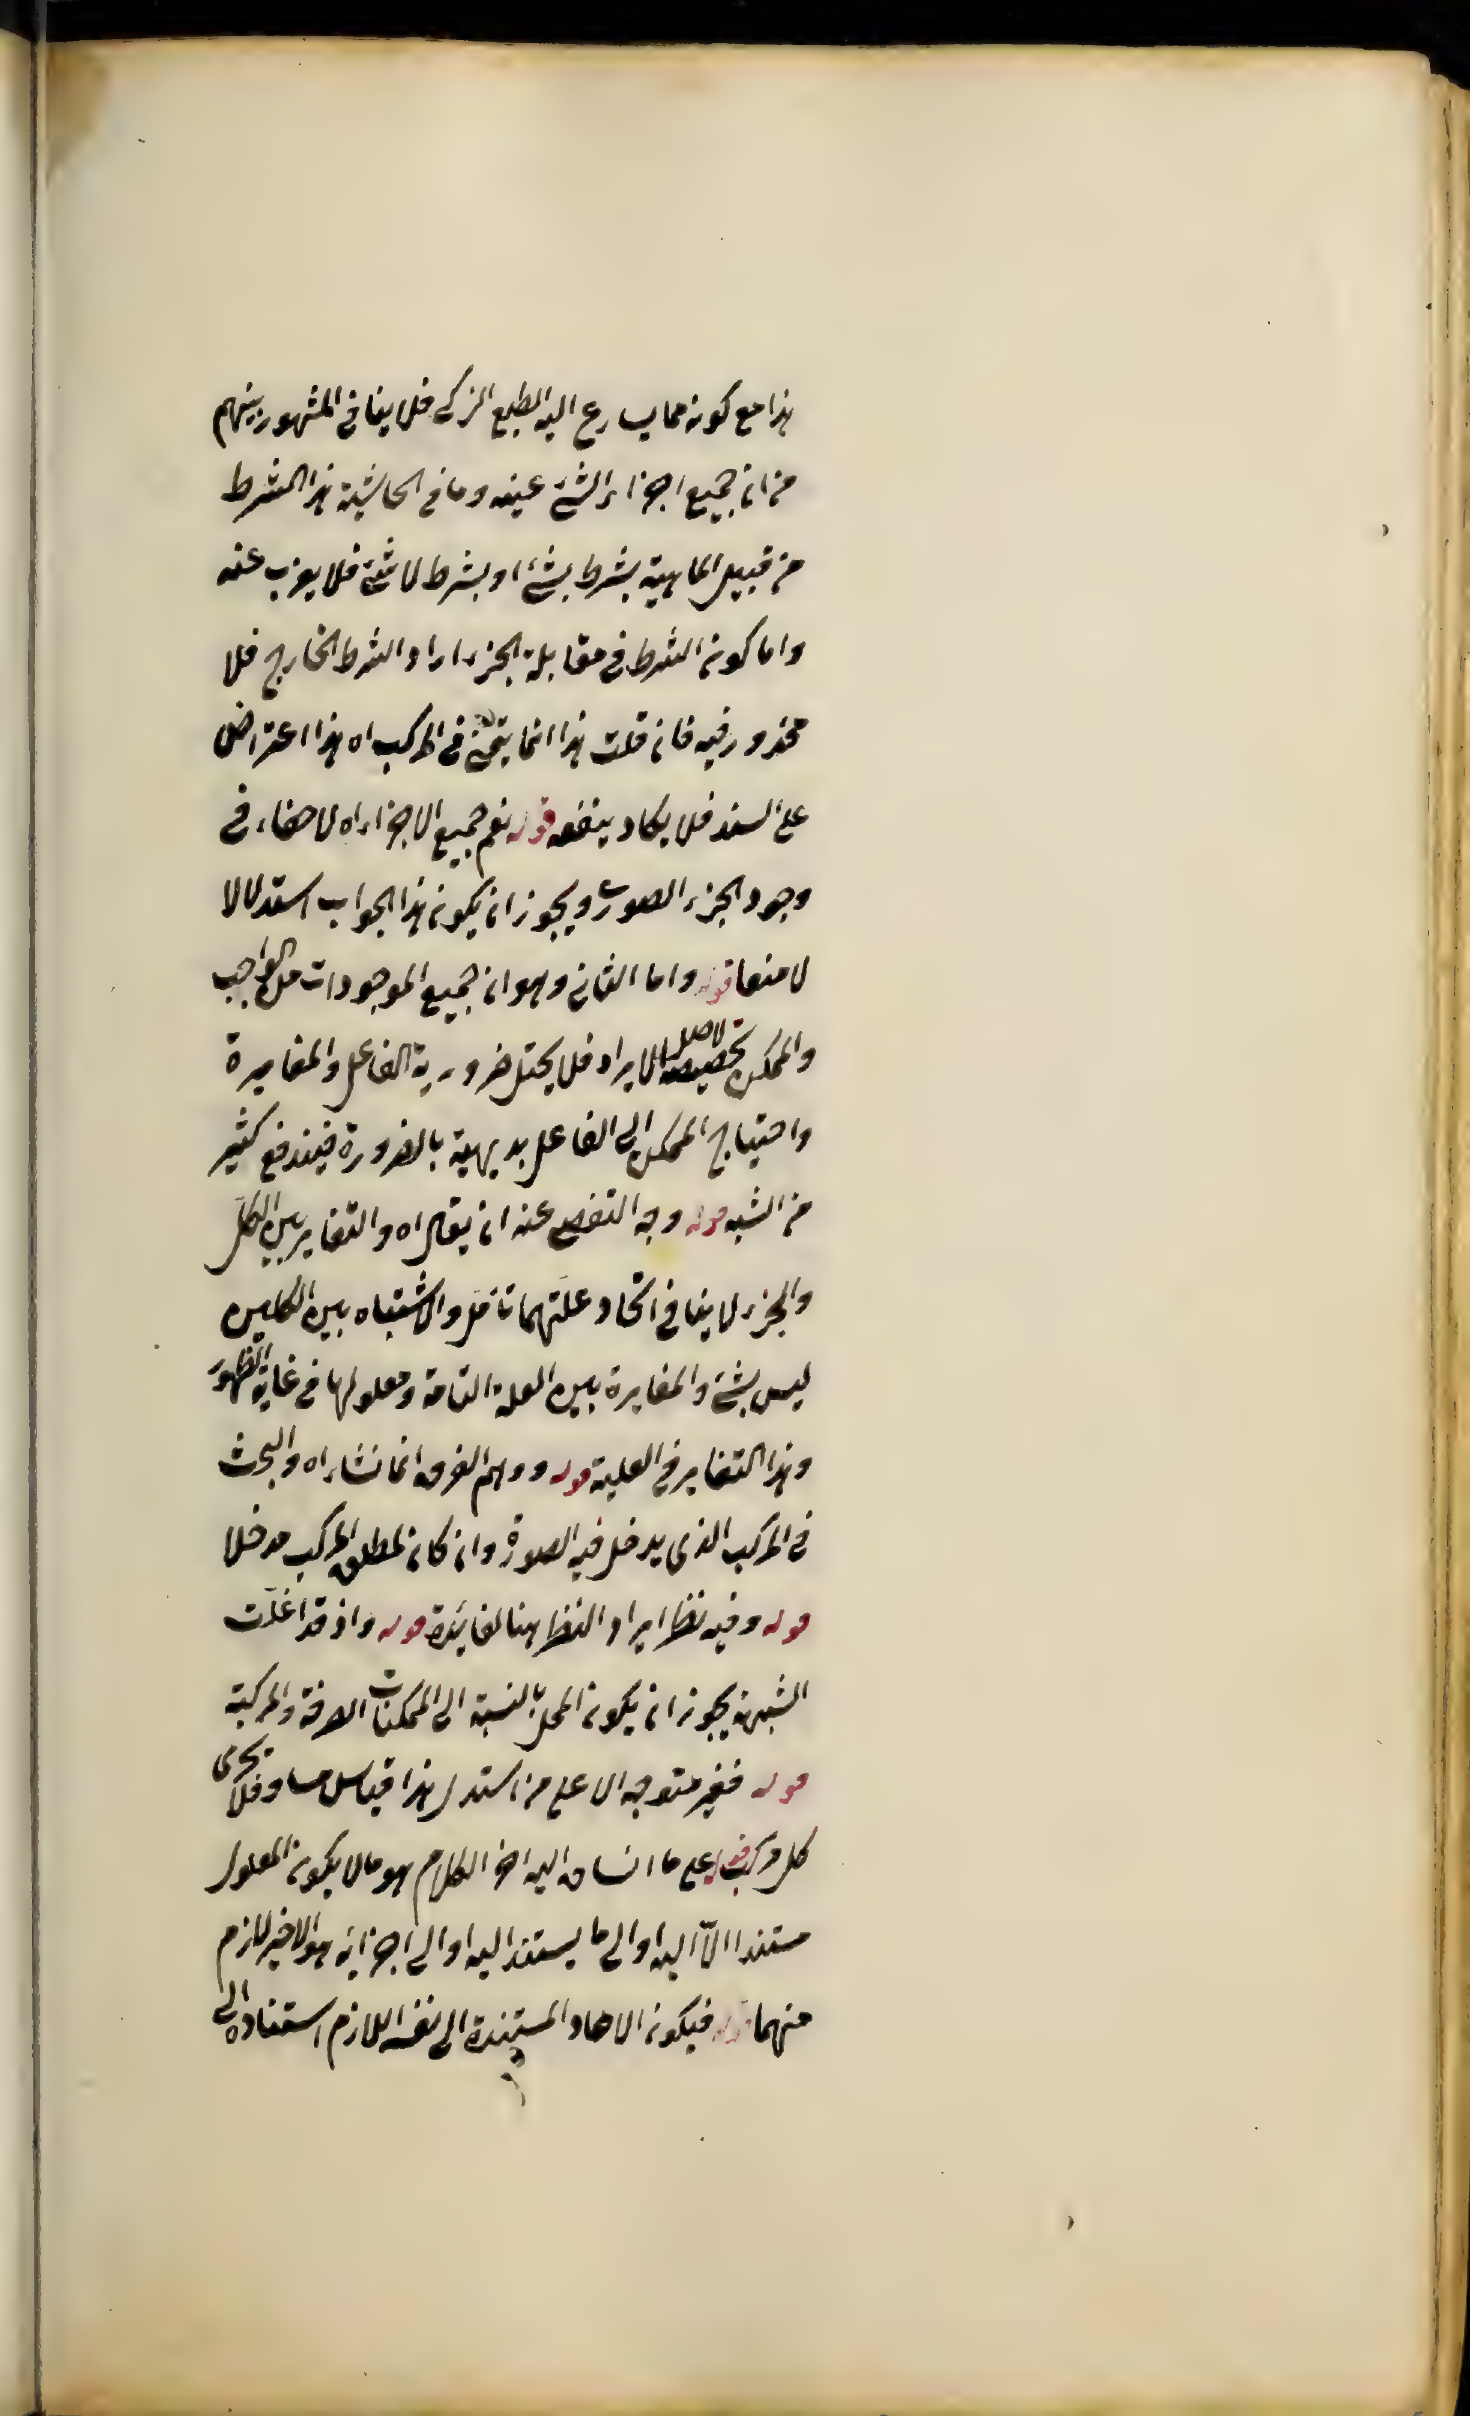 هذا مع كونه مما يسارع اليه الطبع الزكى فلا ينافى المشهور بينهم
من ان جميع اجزاء الشئ عينه وما فى الحاشية هذا الشرط
من قبيل الماهية بشرط بشئ او بشرط لا شئ فلا يعزب عنه
واما كون الشرط فى مقابلة الجزء اراد الشرط الخارج فلا
محذور فيه فان قلت هذا انما فى المركب اه هذا اعتراض
على السند فلا يكاد ينفعه قوله نعم جميع الاجزاء اه لا خفاء فى
وجود الجزء الصورى ويجوز ان يكون هذا الجواب استدلالا
لا منعا قوله واما الثانى وهو ان جميع الموجودات من الواجب
والممكن تخصيصه لاصل الايراد فلا يختل ضرورية الفاعل والمغايرة
واحتياج الممكن الى الفاعل بديهية بالضرورة فيندفع كثير
من الشبه قوله وجه التفصى عنه ان يقال اه والتغاير بين الكل
والجزء لا ينافى اتحاد علتهما تأمل والاشتباه بين الكلين
ليس بشئ والمغايرة بين العلة التامة ومعلولها فى غاية الظهور
وهذا التغاير فى العلية قوله ووهم الفرق انما نشاء اه والبحث
فى المركب الذى يدخل فيه الصورة وان كان لمطلق المركب مدخلا
قوله وفيه نظر ايراد النظر هنا لفائدة قوله واذ قد انحلت
الشبهة يجوز ان يكون الحل بالنسبة الى الممكنات الصرفة والمركبة
قوله فغير متوجه الا على من استدل هذا قياس مساو فلا يجرى
كل مركب قوله على ما انساق اليه اخر الكلام هو ما لا يكون المعلول
مستندا الا اليه او الى ما يستند اليه او الى اجزائه هو الاخير لازم
منهما قوله فيكون الاحاد المستندة الى نفسه اللازم استناده الى